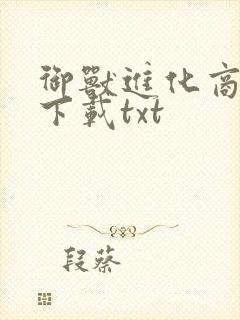 御獸進化商
下載txt
段蔡